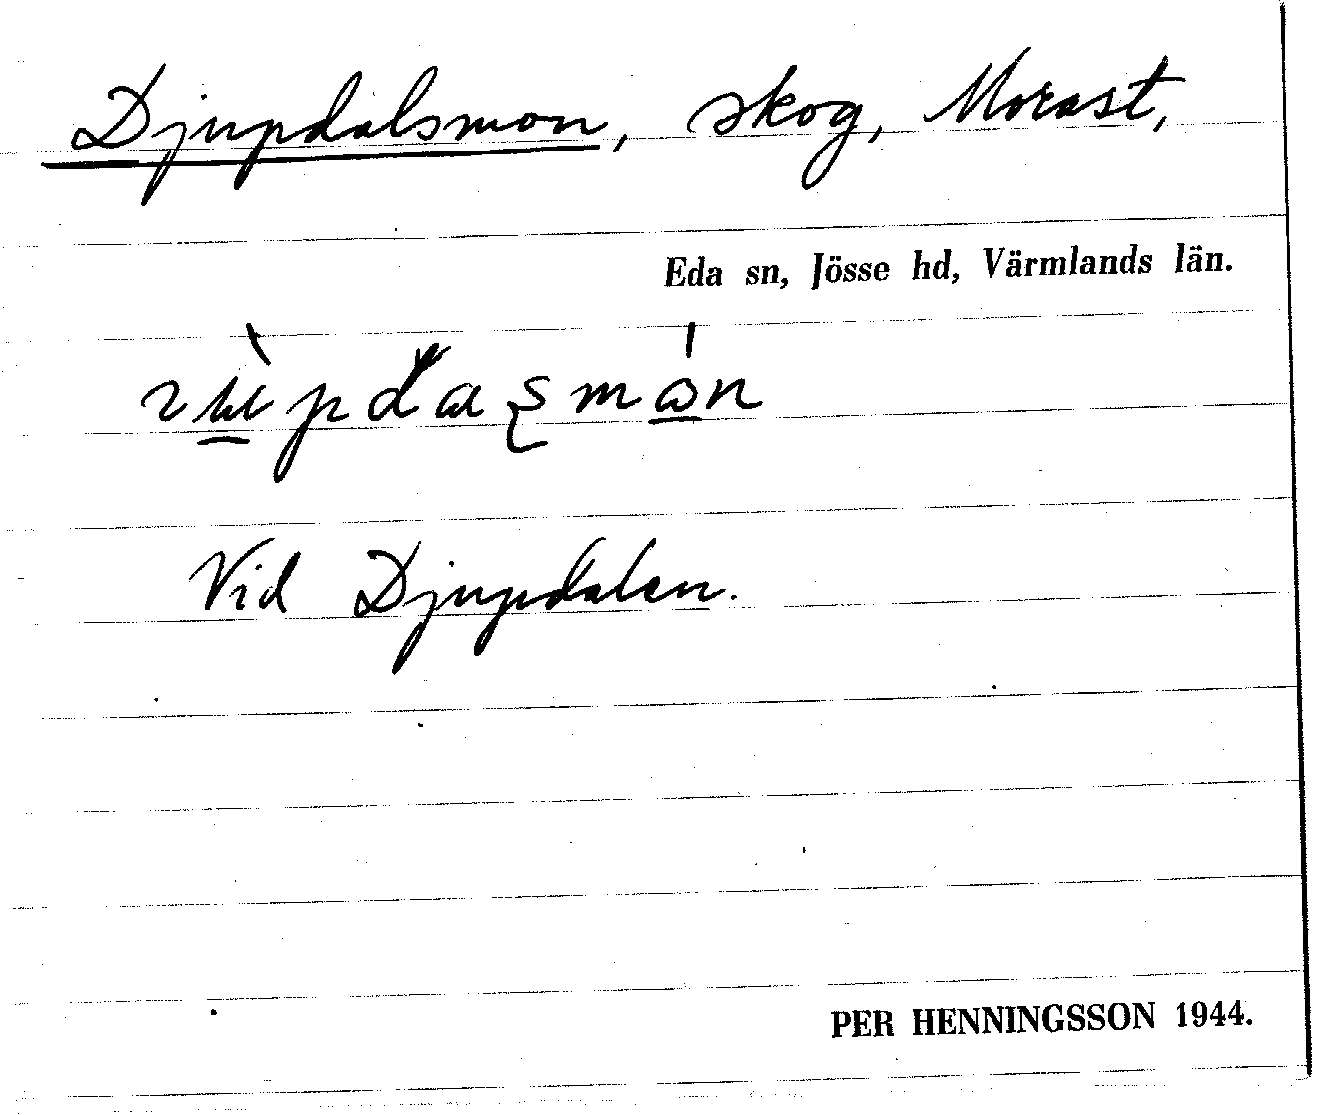 Djupdalsmon, skog, Morast,
Eda sn, Jösse hd, Värmlands län.
Vid Djupdalen.
PER HENNINGSSON 1944.